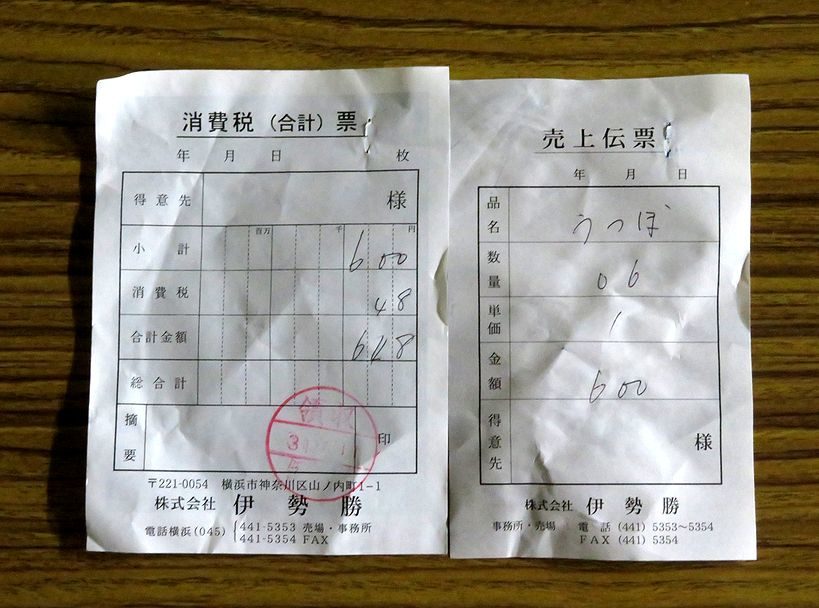 消費税(合計)票
年 月 日 枚
得意先 様
百万 千 円
小計 600
消費税 48
合計金額 648
総合計
摘要 印
領収
〒221-0054 横浜市神奈川区山ノ内町1-1
株式会社 伊勢勝
電話横浜(045) 441-5353 売場・事務所
441-5354 FAX
売上伝票
年 月 日
品名 うつぼ
数量 06
単価 1
金額 600
得意先 様
株式会社 伊勢勝
事務所・売場 電話 (441) 5353~5354
FAX (441) 5354